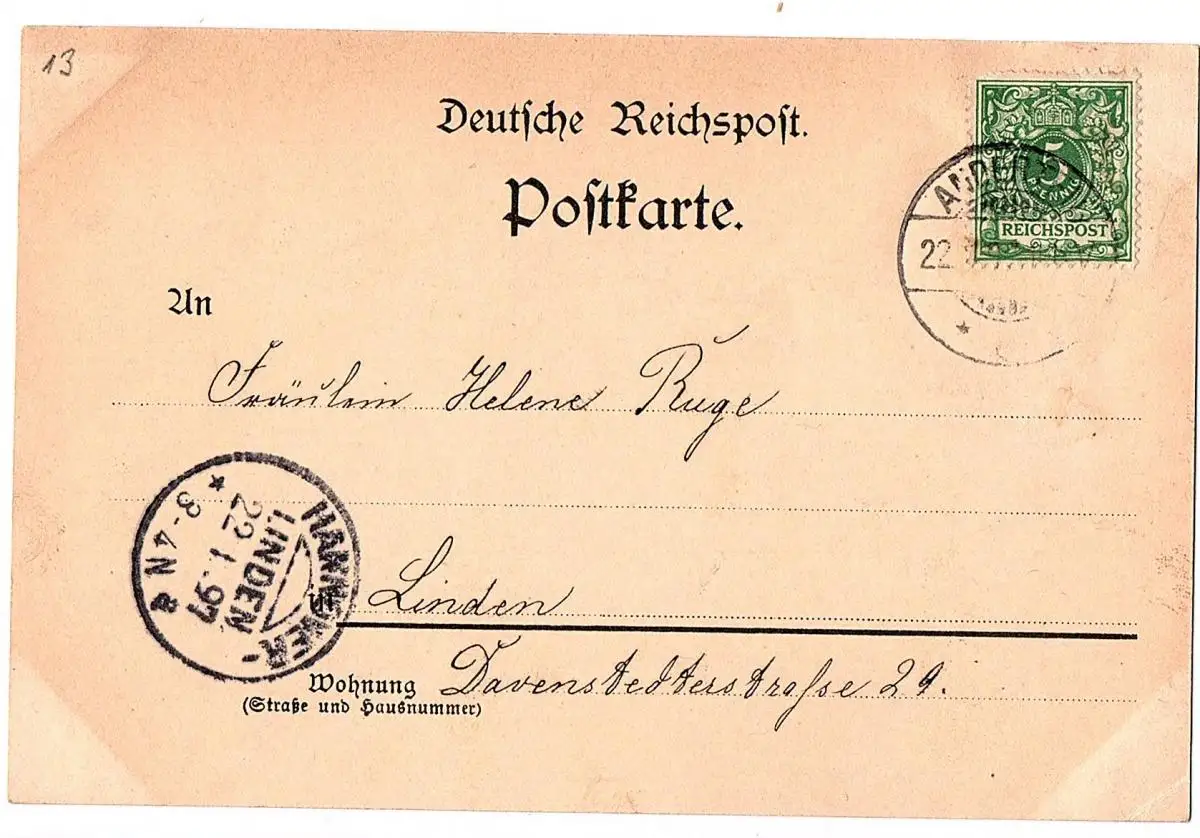 13
Deutsche Reichspost.
Postkarte.
5
PFENNIG
REICHSPOST
22
An
Fräulein Helene Ruge
HANNOVER-
LINDEN
22.1.97
3-4N a
in Linden
Wohnung Davenstedterstraſse 29.
(Straße und Hausnummer)